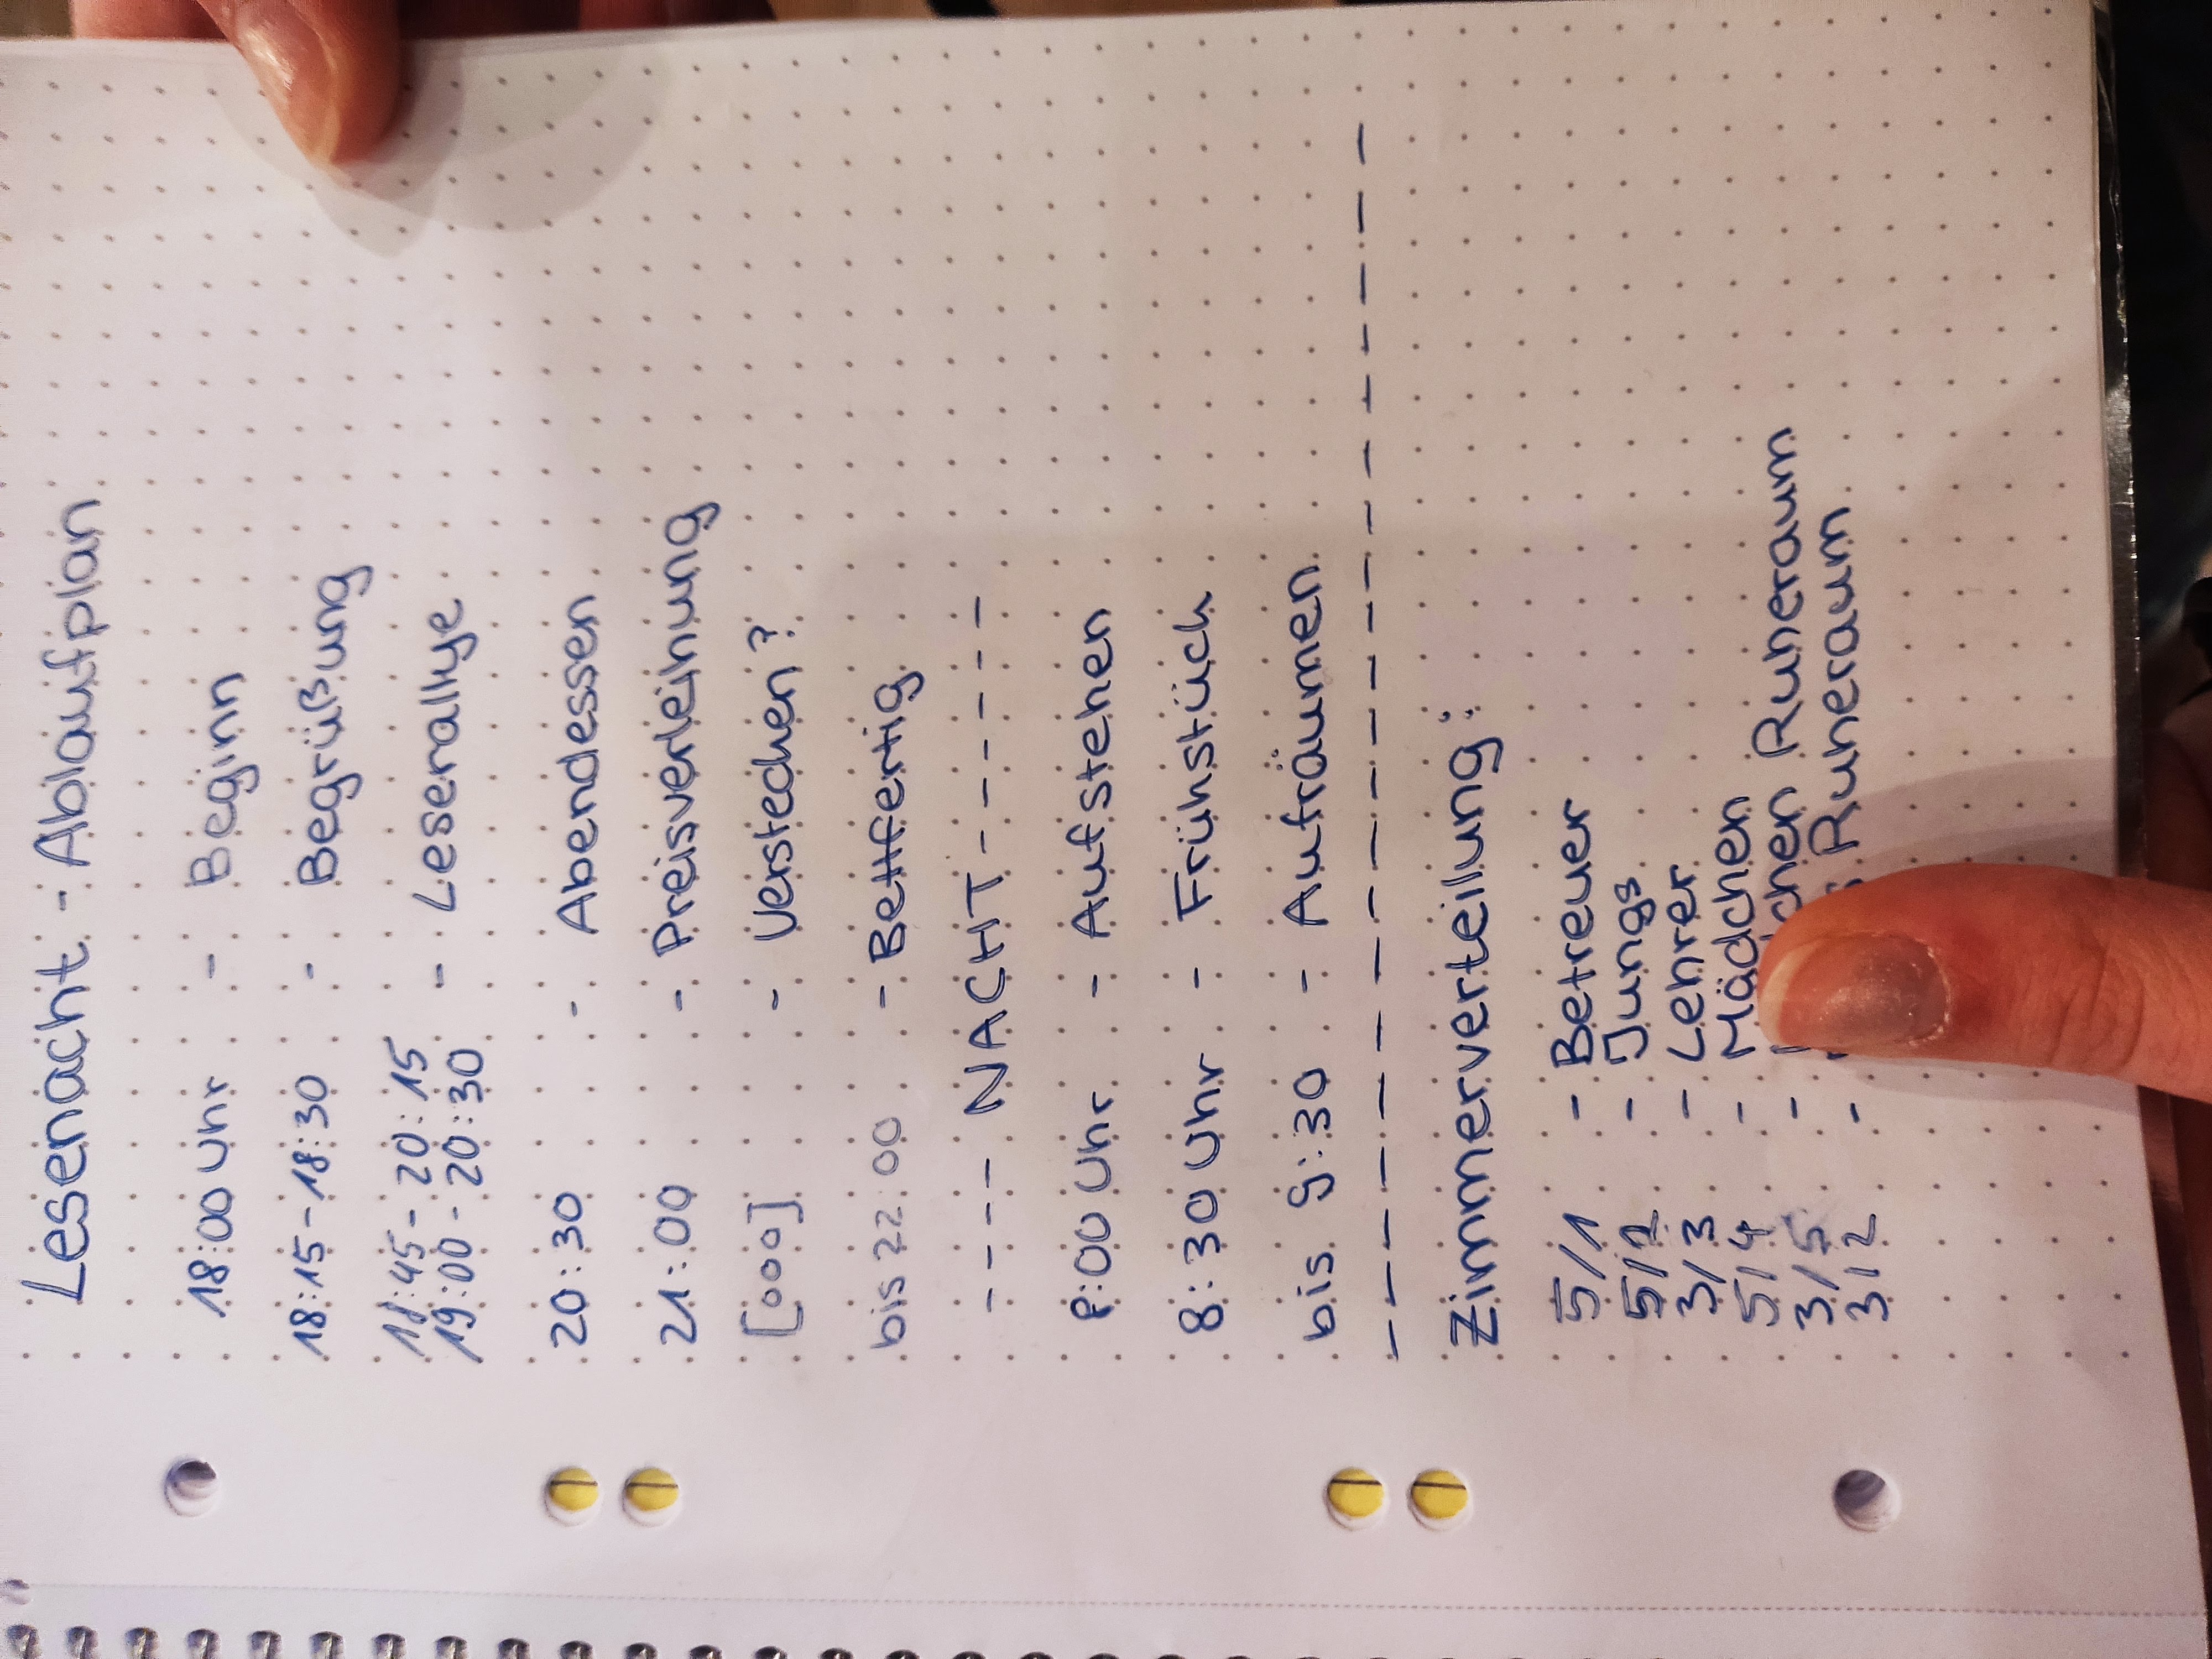 Lesenacht - Ablaufplan
18:00 Uhr - Beginn
18:15 - 18:30 - Begrüßung
18:45 - 20:15 - Leserallye
19:00 - 20:30
20:30 - Abendessen
21:00 - Preisverleihung
[000] - Verstecken?
bis 22:00 - Bettfertig
---- NACHT ------
8:00 Uhr - Aufstehen
8:30 Uhr - Frühstück
bis 9:30 - Aufräumen
Zimmerverteilung:
5/1 - Betreuer
5/2 - Jungs
3/3 - Lehrer
5/4 - Mädchen
3/5 - Ruheraum
3/2 - Ruheraum